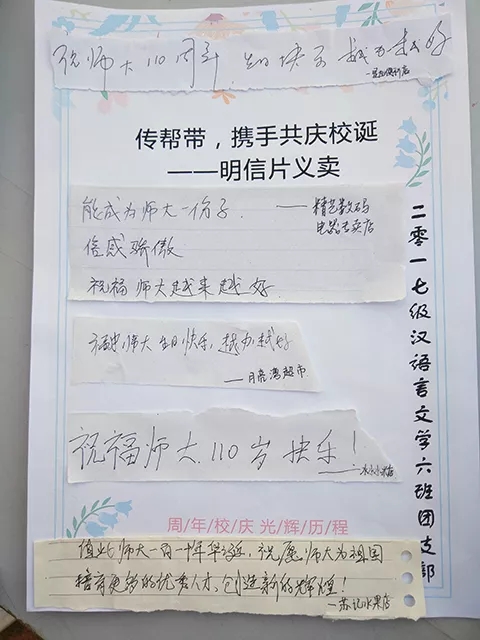 祝师大110周年 生日快乐 越办越好
传帮带，携手共庆校诞
——明信片义卖
能成为师大一份子. ——精艺数码
电器专卖店
倍感骄傲
祝福师大越来越好.
福建师大生日快乐, 越办越好
——月亮湾超市
祝福师大110岁快乐!
周/年/校/庆 光/辉/历/程
值此师大一百一十年华诞, 祝愿师大为祖国
培育更多的优秀人才, 创造新的辉煌!
—苏记水果店
二零一七级汉语言文学六班团支部